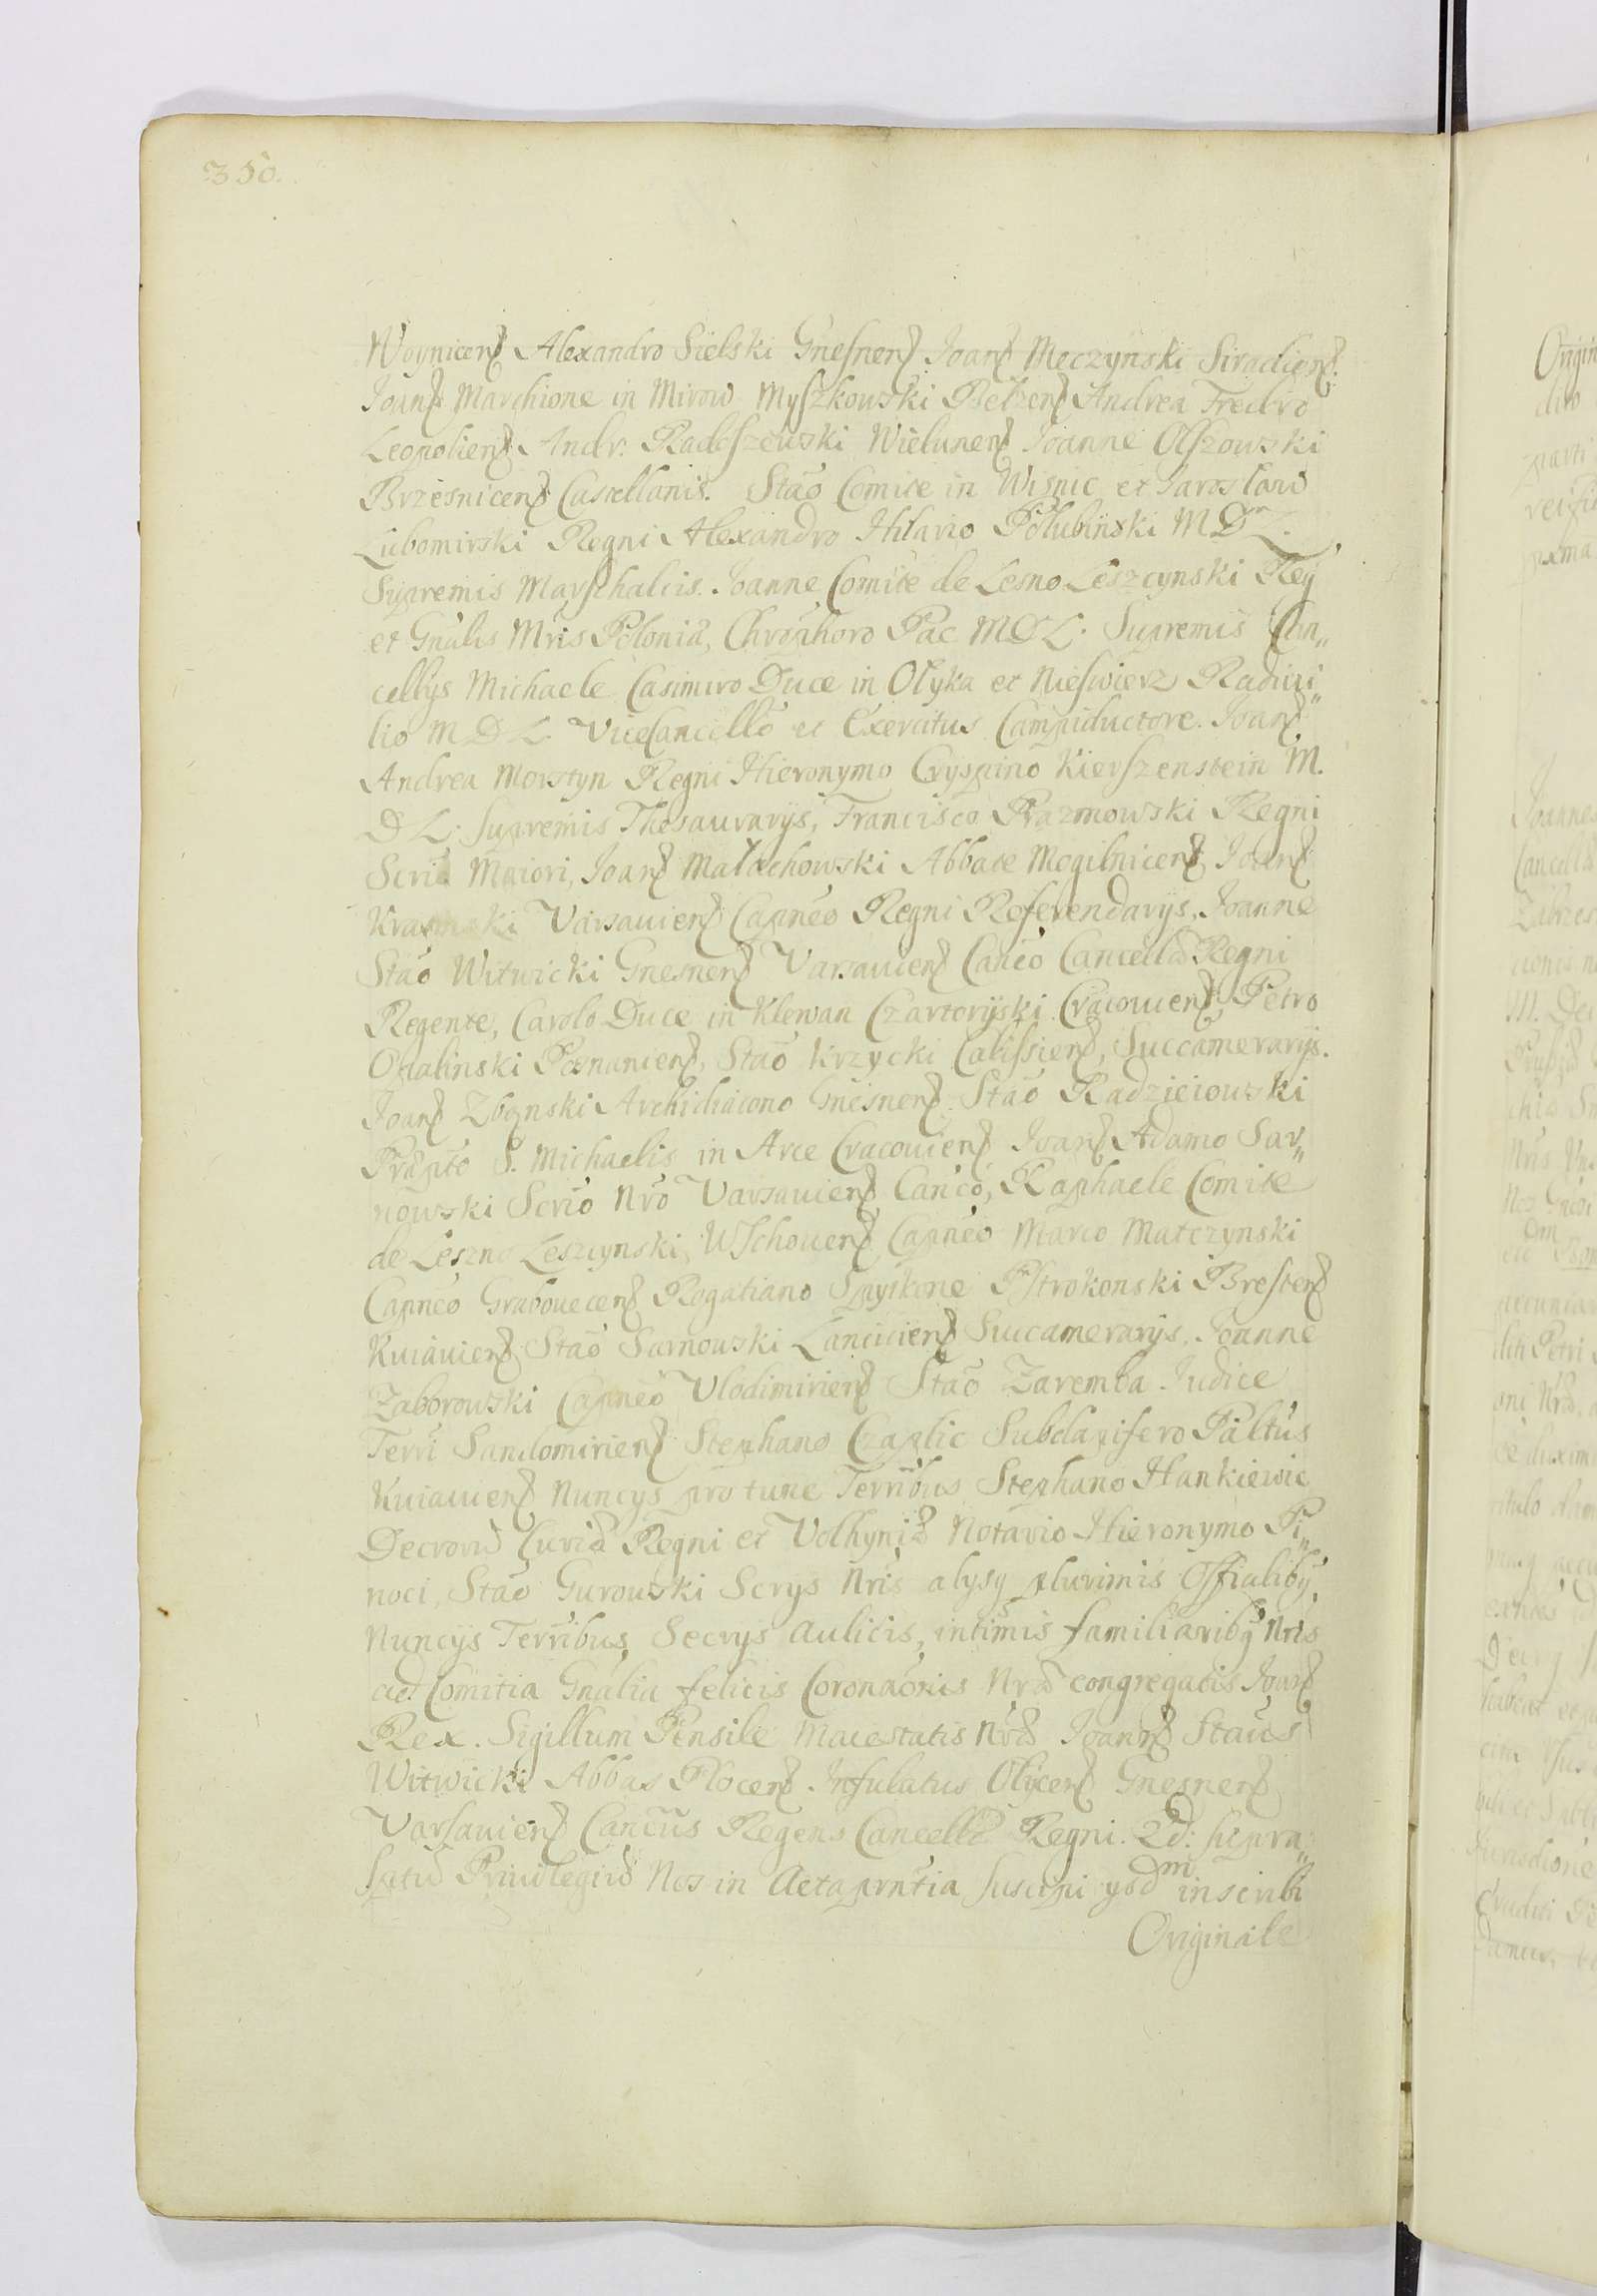 350.
Woynicens Alexandro Sielski Gnesnens Joans Meczynski Siradiens.
Joans Marchione in Mirow Myszkowski Belzens Andrea Fredro
Leopoliens Andr: Radoszewski Wielunens Joanne Olszowski
Brzesnicens Castellanis. Stao Comite in Wisnic et Jaroslaw
Lubomirski Regni Alexandro Hilario Polubinski M D L.
Supremis Marschalcis. Joanne Comite de Lesno Leszcynski Reg
et Gnalis Mris Polonia, Chrophoro Pac M D L. Supremis Can„
cellys Michaele Casimiro Duce in Olyka et Nieswierz Radivi„
lio M D L Vicecancello et Exercitus Campiductore. Joans
Andrea Morstyn Regni Hieronymo Cryspino Kierszenstein M.
D L. Supremis Thesaurarys, Francisco Prazmowski Regni
Scrio Maiori, Joans Malachowski Abbate Mogilnicens Joans
Krasinski Varsauiens Capneo Regni Referendarys, Joanne
Stao Witwicki Gnesnens Varsauiens Canco Cancella Regni
Regente, Carolo Duce in Klewan Czartoryski Cracouiens Petro
Opalinski Posnaniens, Stao Krzycki Calissiens, Succamerarys.
Joans Zbonski Archidiacono Gnesnens Stao Radzieiowski
Prapto S. Michaelis in Arce Cracouiens Joans Adamo Sar„
nowski Scrio Nro Varsauiens Canco, Raphaele Comite
de Leszno Leszcynski, Wschouens Capneo Marco Matczynski
Capneo Grabouecens Rogatiano Spytkone Pstrokonski Brestens
Kuiauiens Stao Sarnowski Lanciciens Succamerarys, Joanne
Zaborowski Capneo Vlodimiriens Stao Zaremba Judice
Terri Sandomiriens Stephano Czaplic Subdapifero Paltus
Kuiauiens Nuncys pro tunc Terribus Stephano Hankiewic
Decroru Curia Regni et Volhynia Notario Hieronymo Pi„
noci, Stao Gurowski Scrys Nris alysq plurimis Offialibq
Nuncys Terribus Secrys aulicis, intimis familiaribq Nris
ad Comitia Gnalia felicis Coronaonis Nra congregatis Joans
Rex. Sigillum Pensile Maiestatis Nra Joanns Staus
Witwicki Abbas Plocens Infulatus Olycens Gnesnens
Varsauiens Cancus Regens Cancella Regni. Qd: supra„
sptu Priuilegiu Nos in Acta prntia suscipi ysdm inscribi
Originale